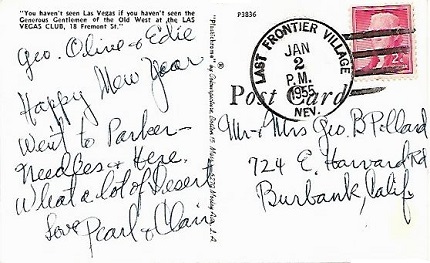 "You haven't seen Las Vegas if you haven't seen the
Generous Gentlemen of the Old West at the LAS
VEGAS CLUB, 18 Fremont St."
P3836
Geo. Olive & Edie
Happy New Year.
Went to Parker-
Needles & Here.
What a lot of desert
Love Pearl & Clair
LAST FRONTIER VILLAGE
JAN
2
P.M.
1955
NEV.
2¢
Post Card
Mr - & Mrs Geo. B Pollard
724 E. Harvard Rd
Burbank, Calif.